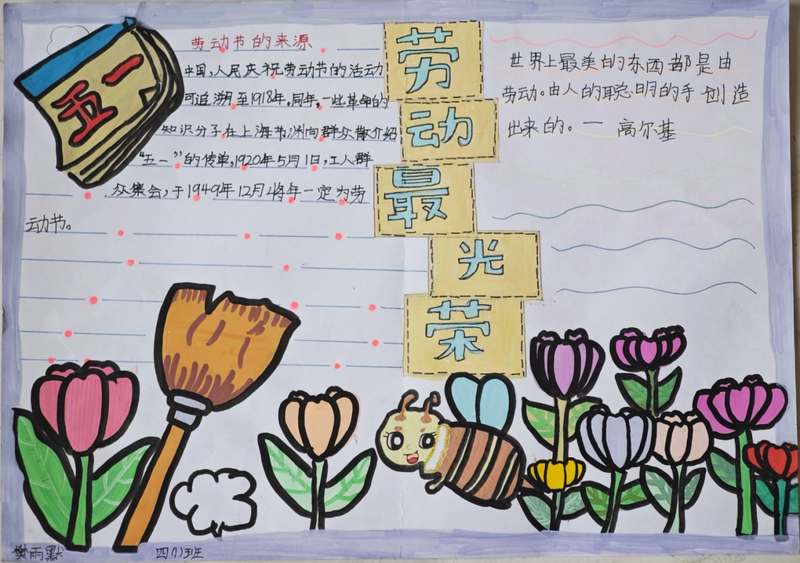 五一
劳动节的来源
中国,人民庆祝劳动节的活动
可追溯至1918年。同年,一些革命的
知识分子在上海等洲向群众散介绍
“五一”的传单,1920年5月1日,工人群
众集会,于1949年12月将年一定为劳
动节。
劳
动
最
光
荣
世界上最美的东西都是由
劳动。由人的聪明的手创造
出来的。一 高尔基
樊雨默
四(1)班